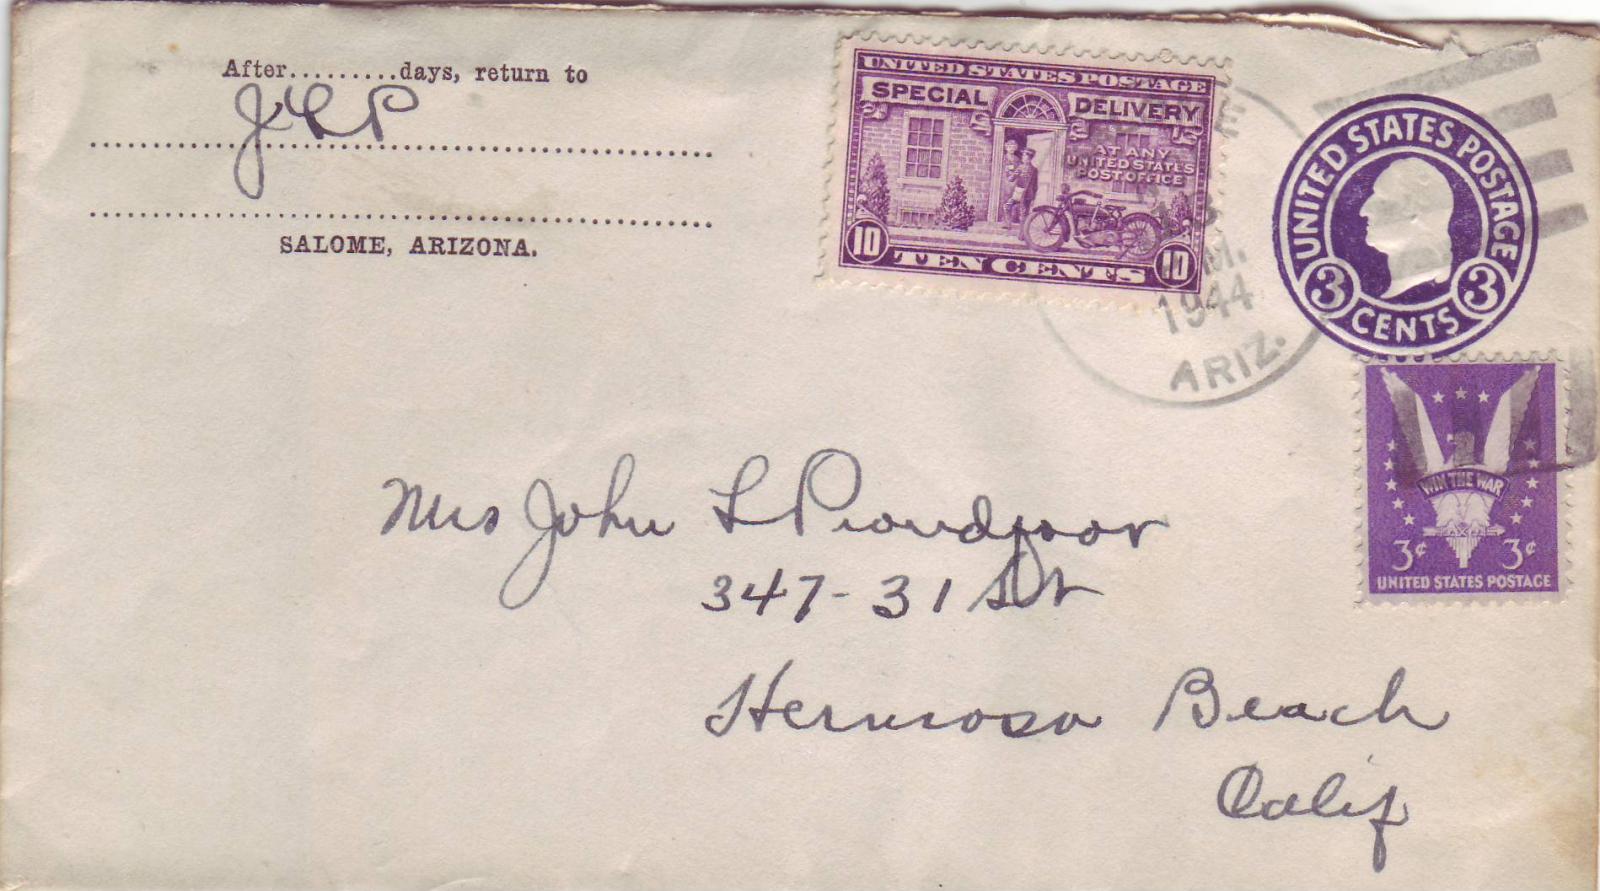 After.........days, return to
JLP
SALOME, ARIZONA.
UNITED STATES POSTAGE
SPECIAL DELIVERY
AT ANY
UNITED STATES
POST OFFICE
10 TEN CENTS 10
M.
1944
ARIZ.
UNITED STATES POSTAGE
3 CENTS 3
WIN THE WAR
3¢ 3¢
UNITED STATES POSTAGE
Mrs John L Proudfoot
347-31 St
Hermosa Beach
Calif